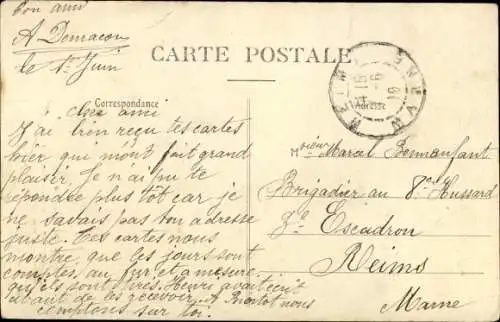 ton ami
A Demacon
le 1er Juin
CARTE POSTALE
Correspondance
Adresse
cher ami
J'ai bien reçu tes cartes
hier qui m'ont fait grand
plaisir. Je n'ai pu te
répondre plus tôt car je
ne savais pas ton adresse
juste. Tes cartes nous
montre, que les jours sont
comptés, au fur et a mesure
qu'ils sont près. Henri avait écrit
avant de les recevoir. A Bientôt nous
comptons sur toi.
Monsieur Marcel Bonnenfant
Brigadier au 8e Hussard
2e Escadron
Reims
Marne